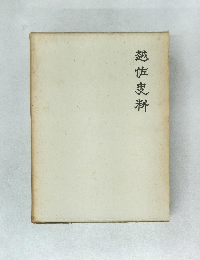 越佐史料